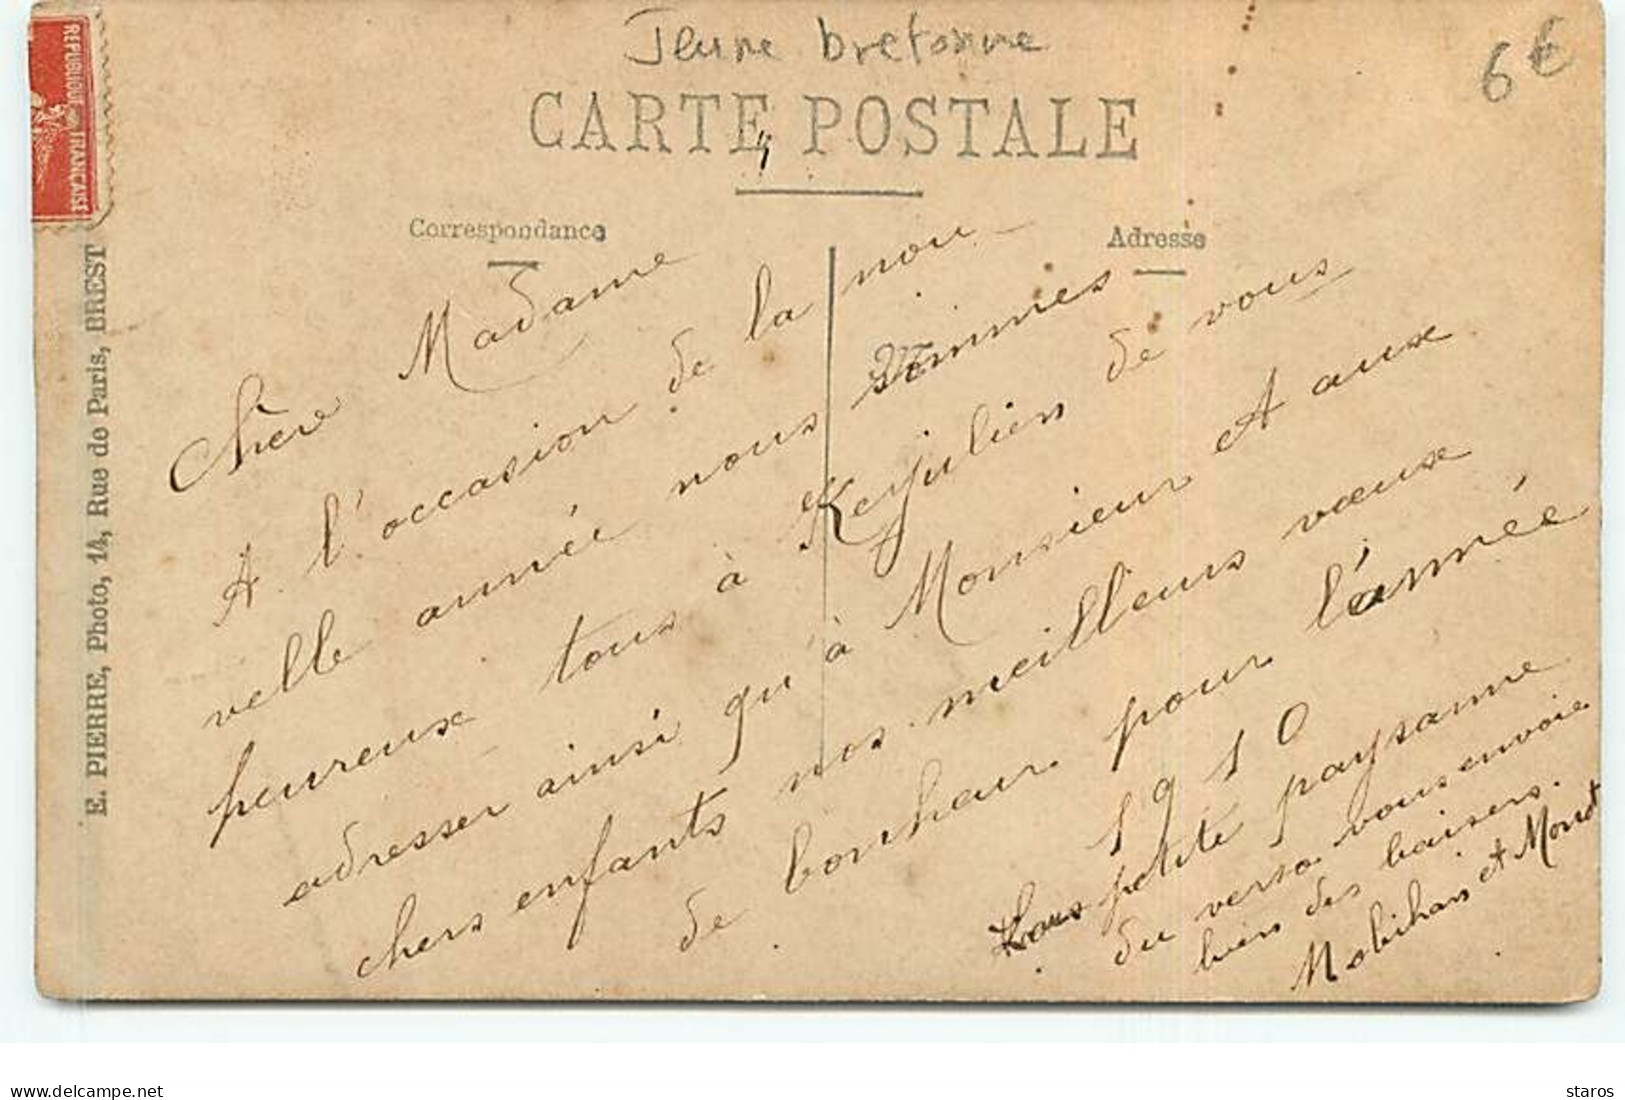 Jeune bretonne
6€
CARTE POSTALE
Correspondance
Adresse
REPUBLIQUE FRANÇAISE
E. PIERRE, Photo, 14, Rue de Paris, BREST
Chère Madame
A l'occasion de la nou-
velle année nous sommes
heureux tous à Kerjulien de vous
adresser ainsi qu'à Monsieur et aux
chers enfants nos meilleurs vœux
de bonheur pour l'année
1910
petite paysanne
du verso vous envoie
bien des baisers.
et
delcampe.net
staros